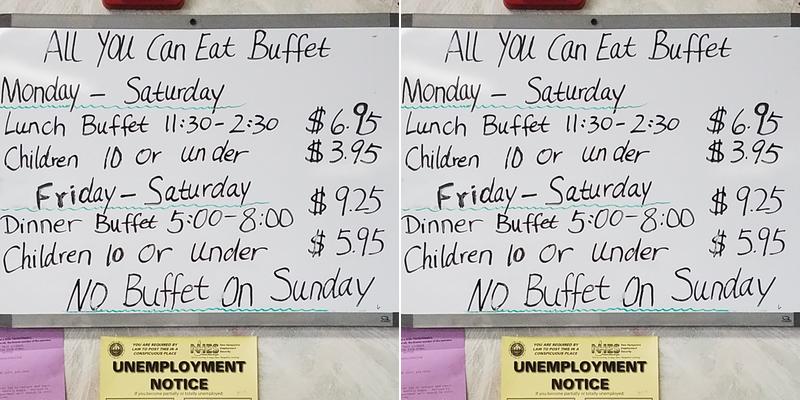 All You Can Eat Buffet
Monday - Saturday
Lunch Buffet 11:30-2:30 $6.95
Children 10 Or under $3.95
Friday - Saturday
Dinner Buffet 5:00-8:00 $9.25
Children 10 Or Under $5.95
NO Buffet On Sunday
YOU ARE REQUIRED BY
LAW TO POST THIS IN A
CONSPICUOUS PLACE
NHES
UNEMPLOYMENT
NOTICE
If you become partially or totally unemployed:
All You Can Eat Buffet
Monday - Saturday
Lunch Buffet 11:30-2:30 $6.95
Children 10 Or under $3.95
Friday - Saturday
Dinner Buffet 5:00-8:00 $9.25
Children 10 Or Under $5.95
NO Buffet On Sunday
YOU ARE REQUIRED BY
LAW TO POST THIS IN A
CONSPICUOUS PLACE
NHES
UNEMPLOYMENT
NOTICE
If you become partially or totally unemployed: